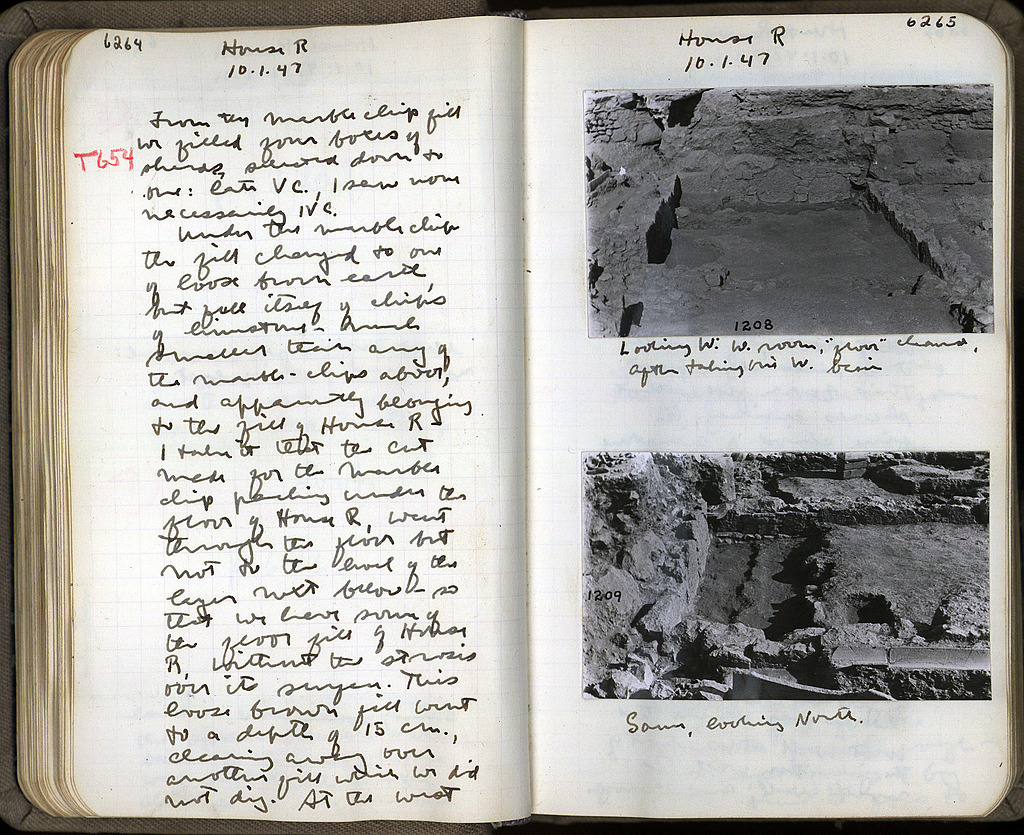 6264
House R
10.1.47
From the marble chip fill
T654
we filled four boxes of
sherds, sorted down to
one: late V C., I saw none
necessarily IV C.
Under the marble chip
the fill changed to one
of loose brown earth,
but full itself of chips
of limestone - much
smaller than any of
the marble-chips above,
and apparently belonging
to the fill of House R -
I take it that the cut
made for the marble
chip packing under the
floor of House R, went
through the floor but
not to the level of the
layer next below - so
that we have some of
the floor fill of House
R, without the strosis
over its surface. This
loose brown fill went
to a depth of 15 cm.,
clearing away over
another fill which we did
not dig. At the west
6265
House R
10.1.47
1208
Looking W. W. room, "floor" cleaned,
after taking this W. basin
1209
Same, looking North.